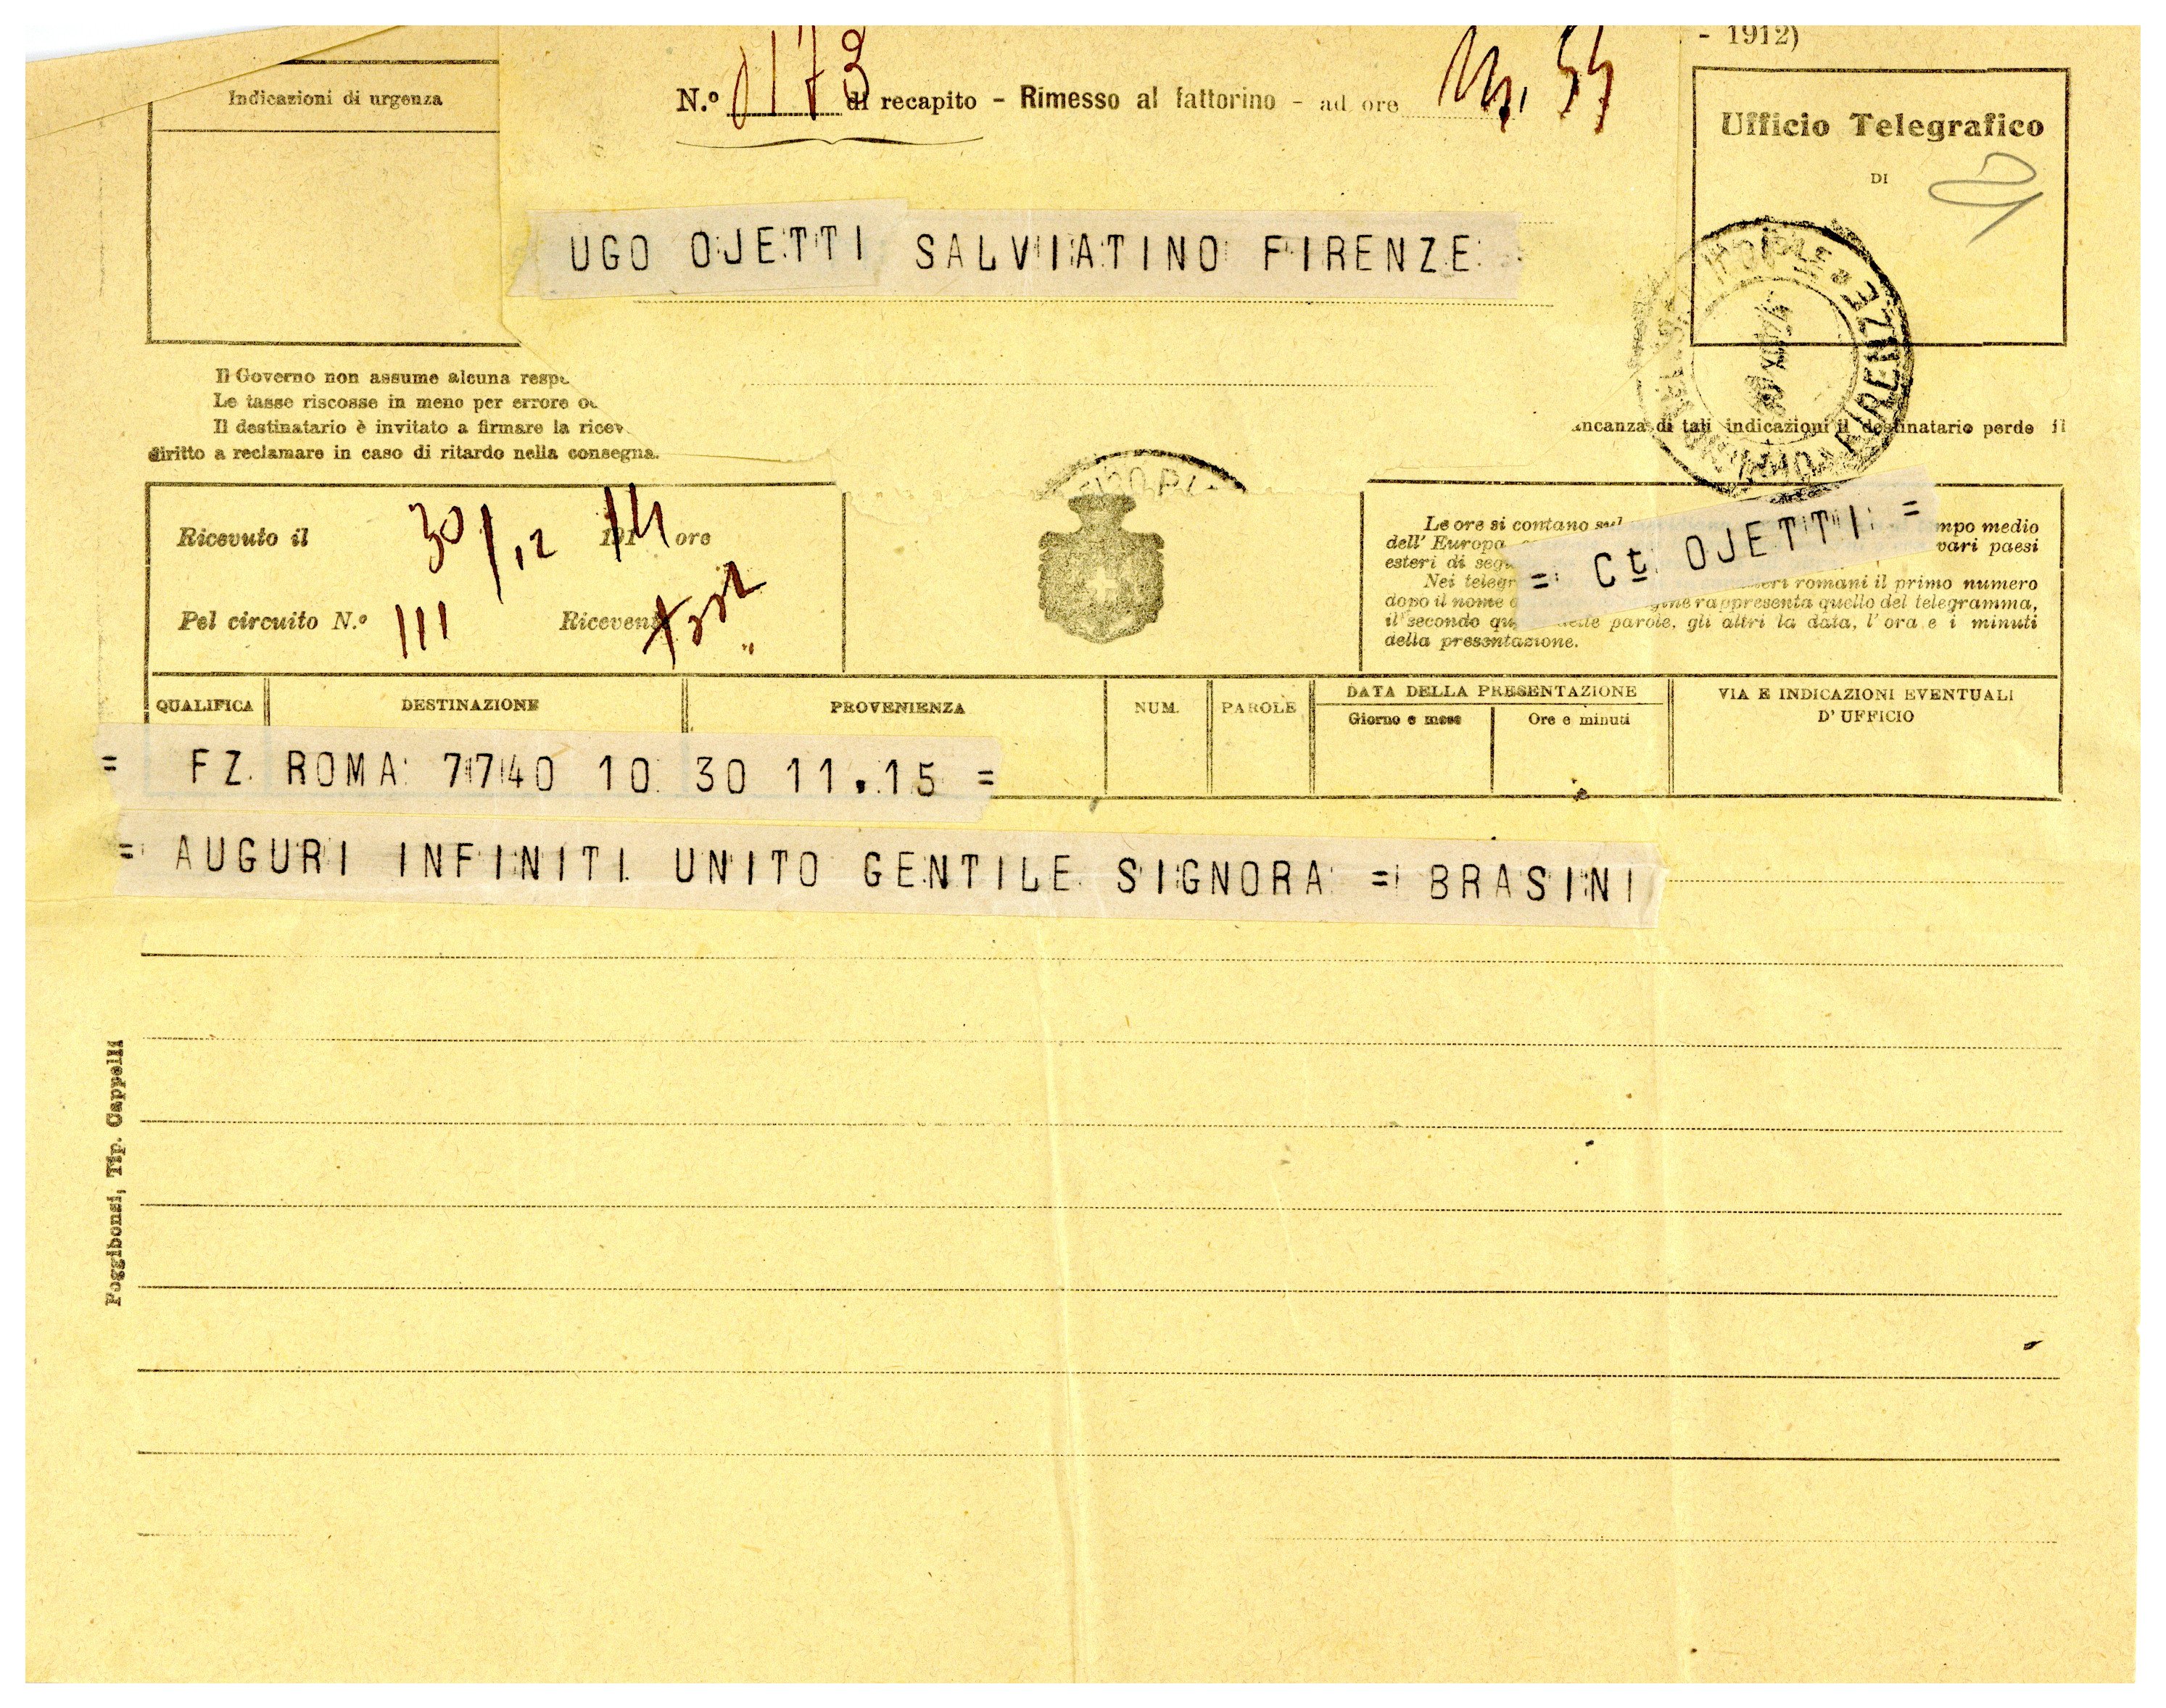 - 1912)
Indicazioni di urgenza
N.º 0173 di recapito - Rimesso al fattorino - ad ore
Ufficio Telegrafico
DI
UGO OJETTI SALVIATINO FIRENZE
Il Governo non assume alcuna
Le tasse riscosse in meno per errore
Il destinatario è invitato a firmare la
di tali indicazioni il destinatario perde il
diritto a reclamare in caso di ritardo nella consegna.
FIRENZE
Ricevuto il 30/12 191 14 ore
Pel circuito N.º 111 Ricevente
Le ore si contano sul
mpo medio
dell' Europa
vari paesi
esteri di
= Ct OJETTI =
Nei
romani il primo numero
dopo il nome
rappresenta quello del telegramma,
il secondo delle parole, gli altri la data, l'ora e i minuti
della presentazione.
QUALIFICA DESTINAZIONE PROVENIENZA NUM. PAROLE DATA DELLA PRESENTAZIONE VIA E INDICAZIONI EVENTUALI
Giorno e mese Ore e minuti D' UFFICIO
= FZ ROMA 7740 10 30 11.15 =
= AUGURI INFINITI UNITO GENTILE SIGNORA = BRASINI
Poggibonsi, Tip. Cappelli